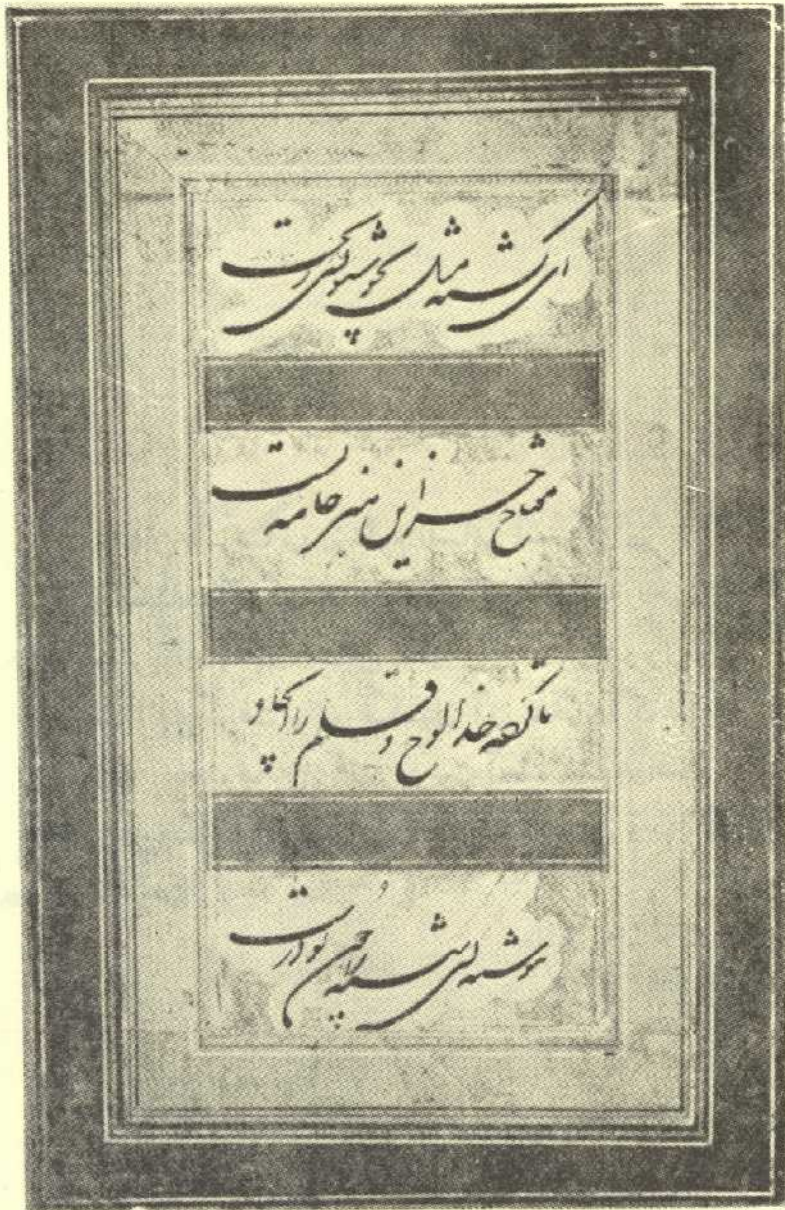 ای گشته مثل بخوشنویسی ز نخست
مفتاح خزاین هنر خامه تست
تا کرده خدا لوح و قلم را ایجاد
ننوشته کسی شکسته را چون تو درست